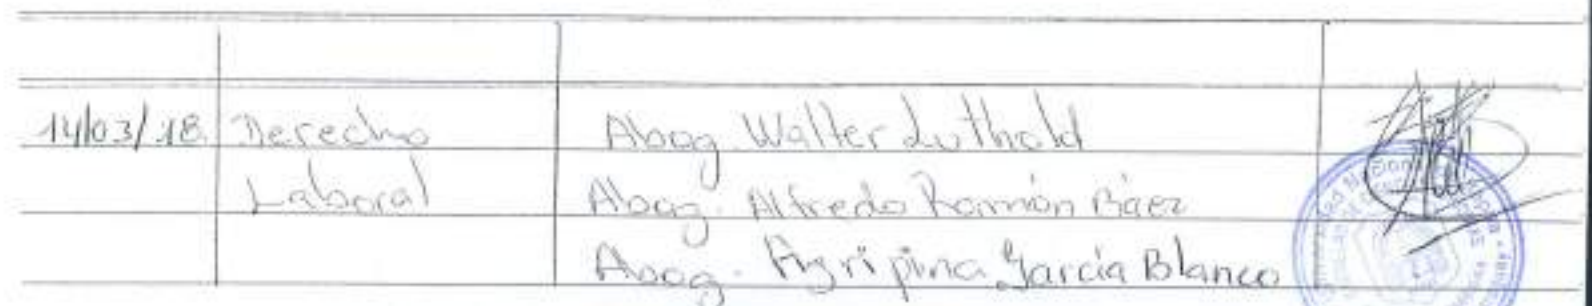 14/03/18. Derecho Abog. Walter Luthold
Laboral Abog. Alfredo Ramón Báez
Abog. Agripina García Blanco